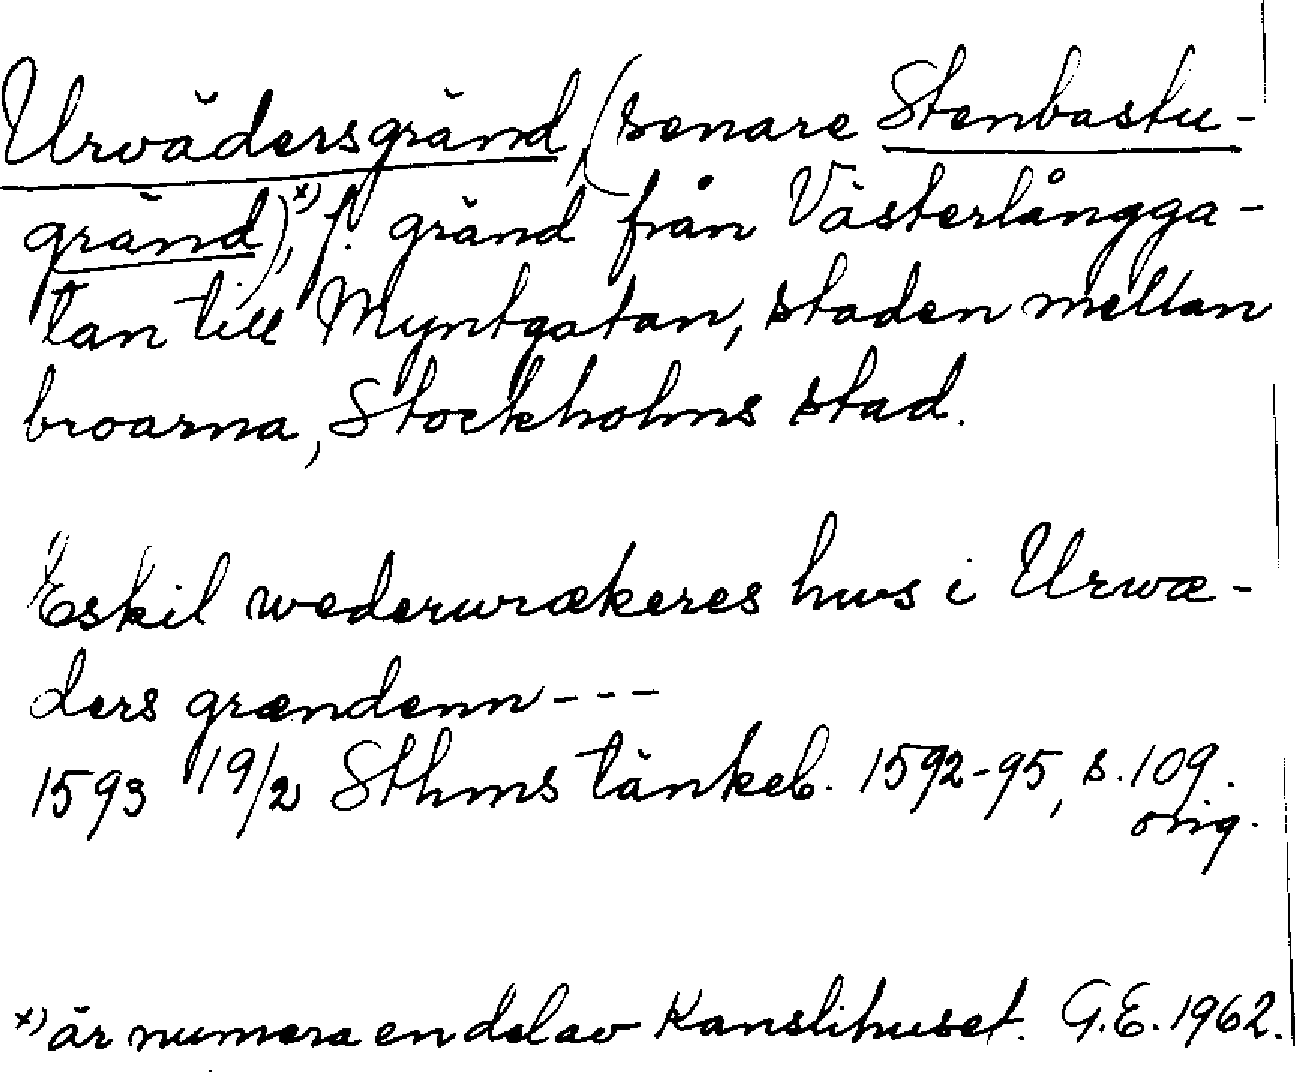 Urvädersgränd, (senare Stenbastu-
gränd),x) f. gränd från Västerlångga-
tan till Myntgatan, staden mellan
broarna, Stockholms stad.
Eskil wederwrækeres hws i Urwæ-
ders grændenn ---
1593 19/2 Sthms tänkeb. 1592-95, s. 109.
orig.
x) är numera en del av Kanslihuset. G.E. 1962.